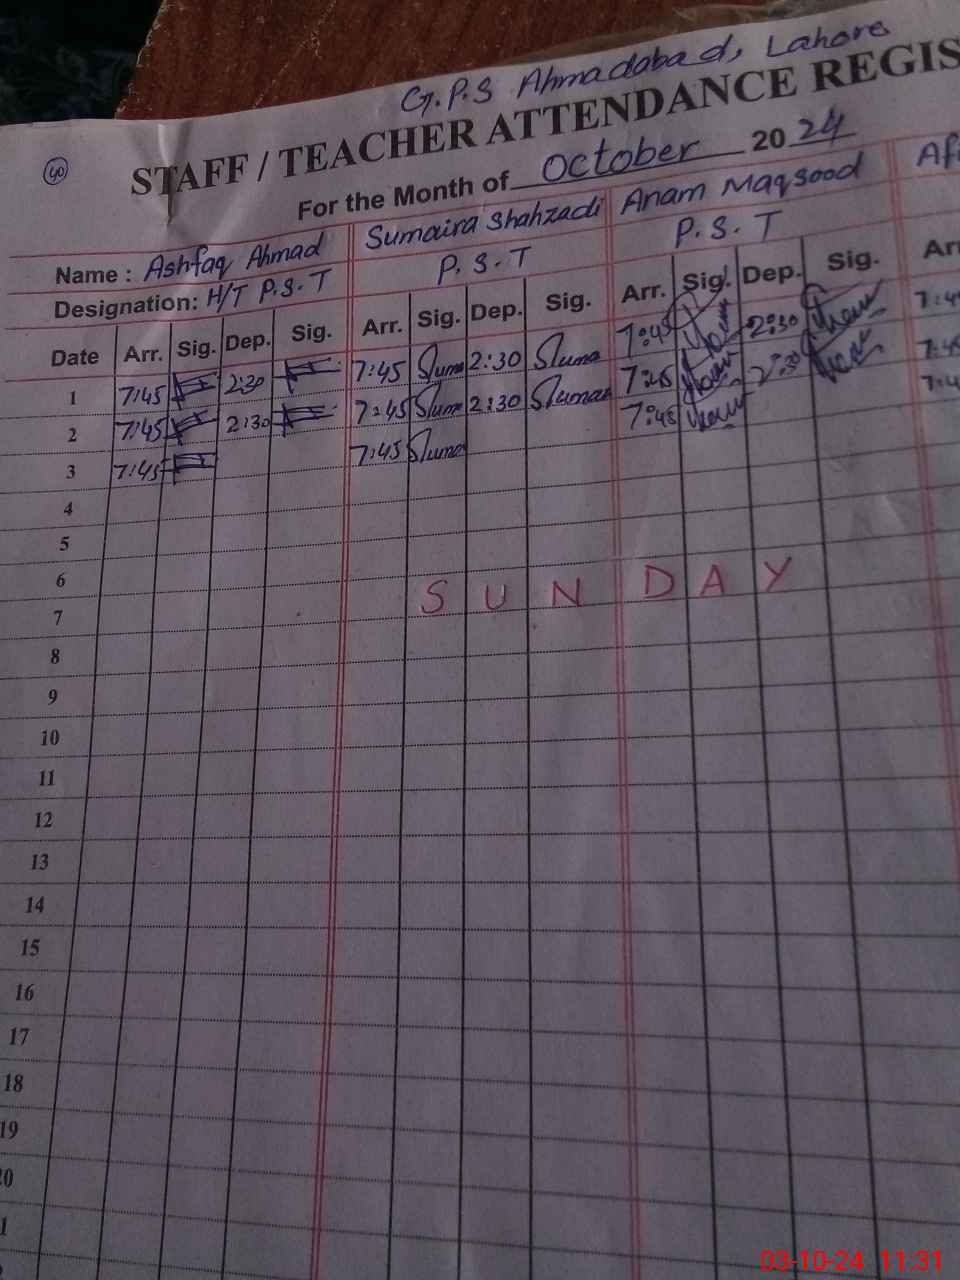 G.P.S Ahmadabad, Lahore
40
STAFF / TEACHER ATTENDANCE REGIS
For the Month of October 2024
Name : Ashfaq Ahmad Sumaira Shahzadi Anam Maqsood Af
Designation: H/T P.S.T P.S.T P.S.T
Date Arr. Sig. Dep. Sig. Arr. Sig. Dep. Sig. Arr. Sig. Dep. Sig. Arr
1 7:45 2:30 7:45 2:30 7:45 2:30 7:4
2 7:45 2:30 7:45 2:30 7:45 2:30 7:4
3 7:45 7:45 7:45 7:4
4
5
6 SUNDAY
7
8
9
10
11
12
13
14
15
16
17
18
19
20
1
03-10-24 11:31